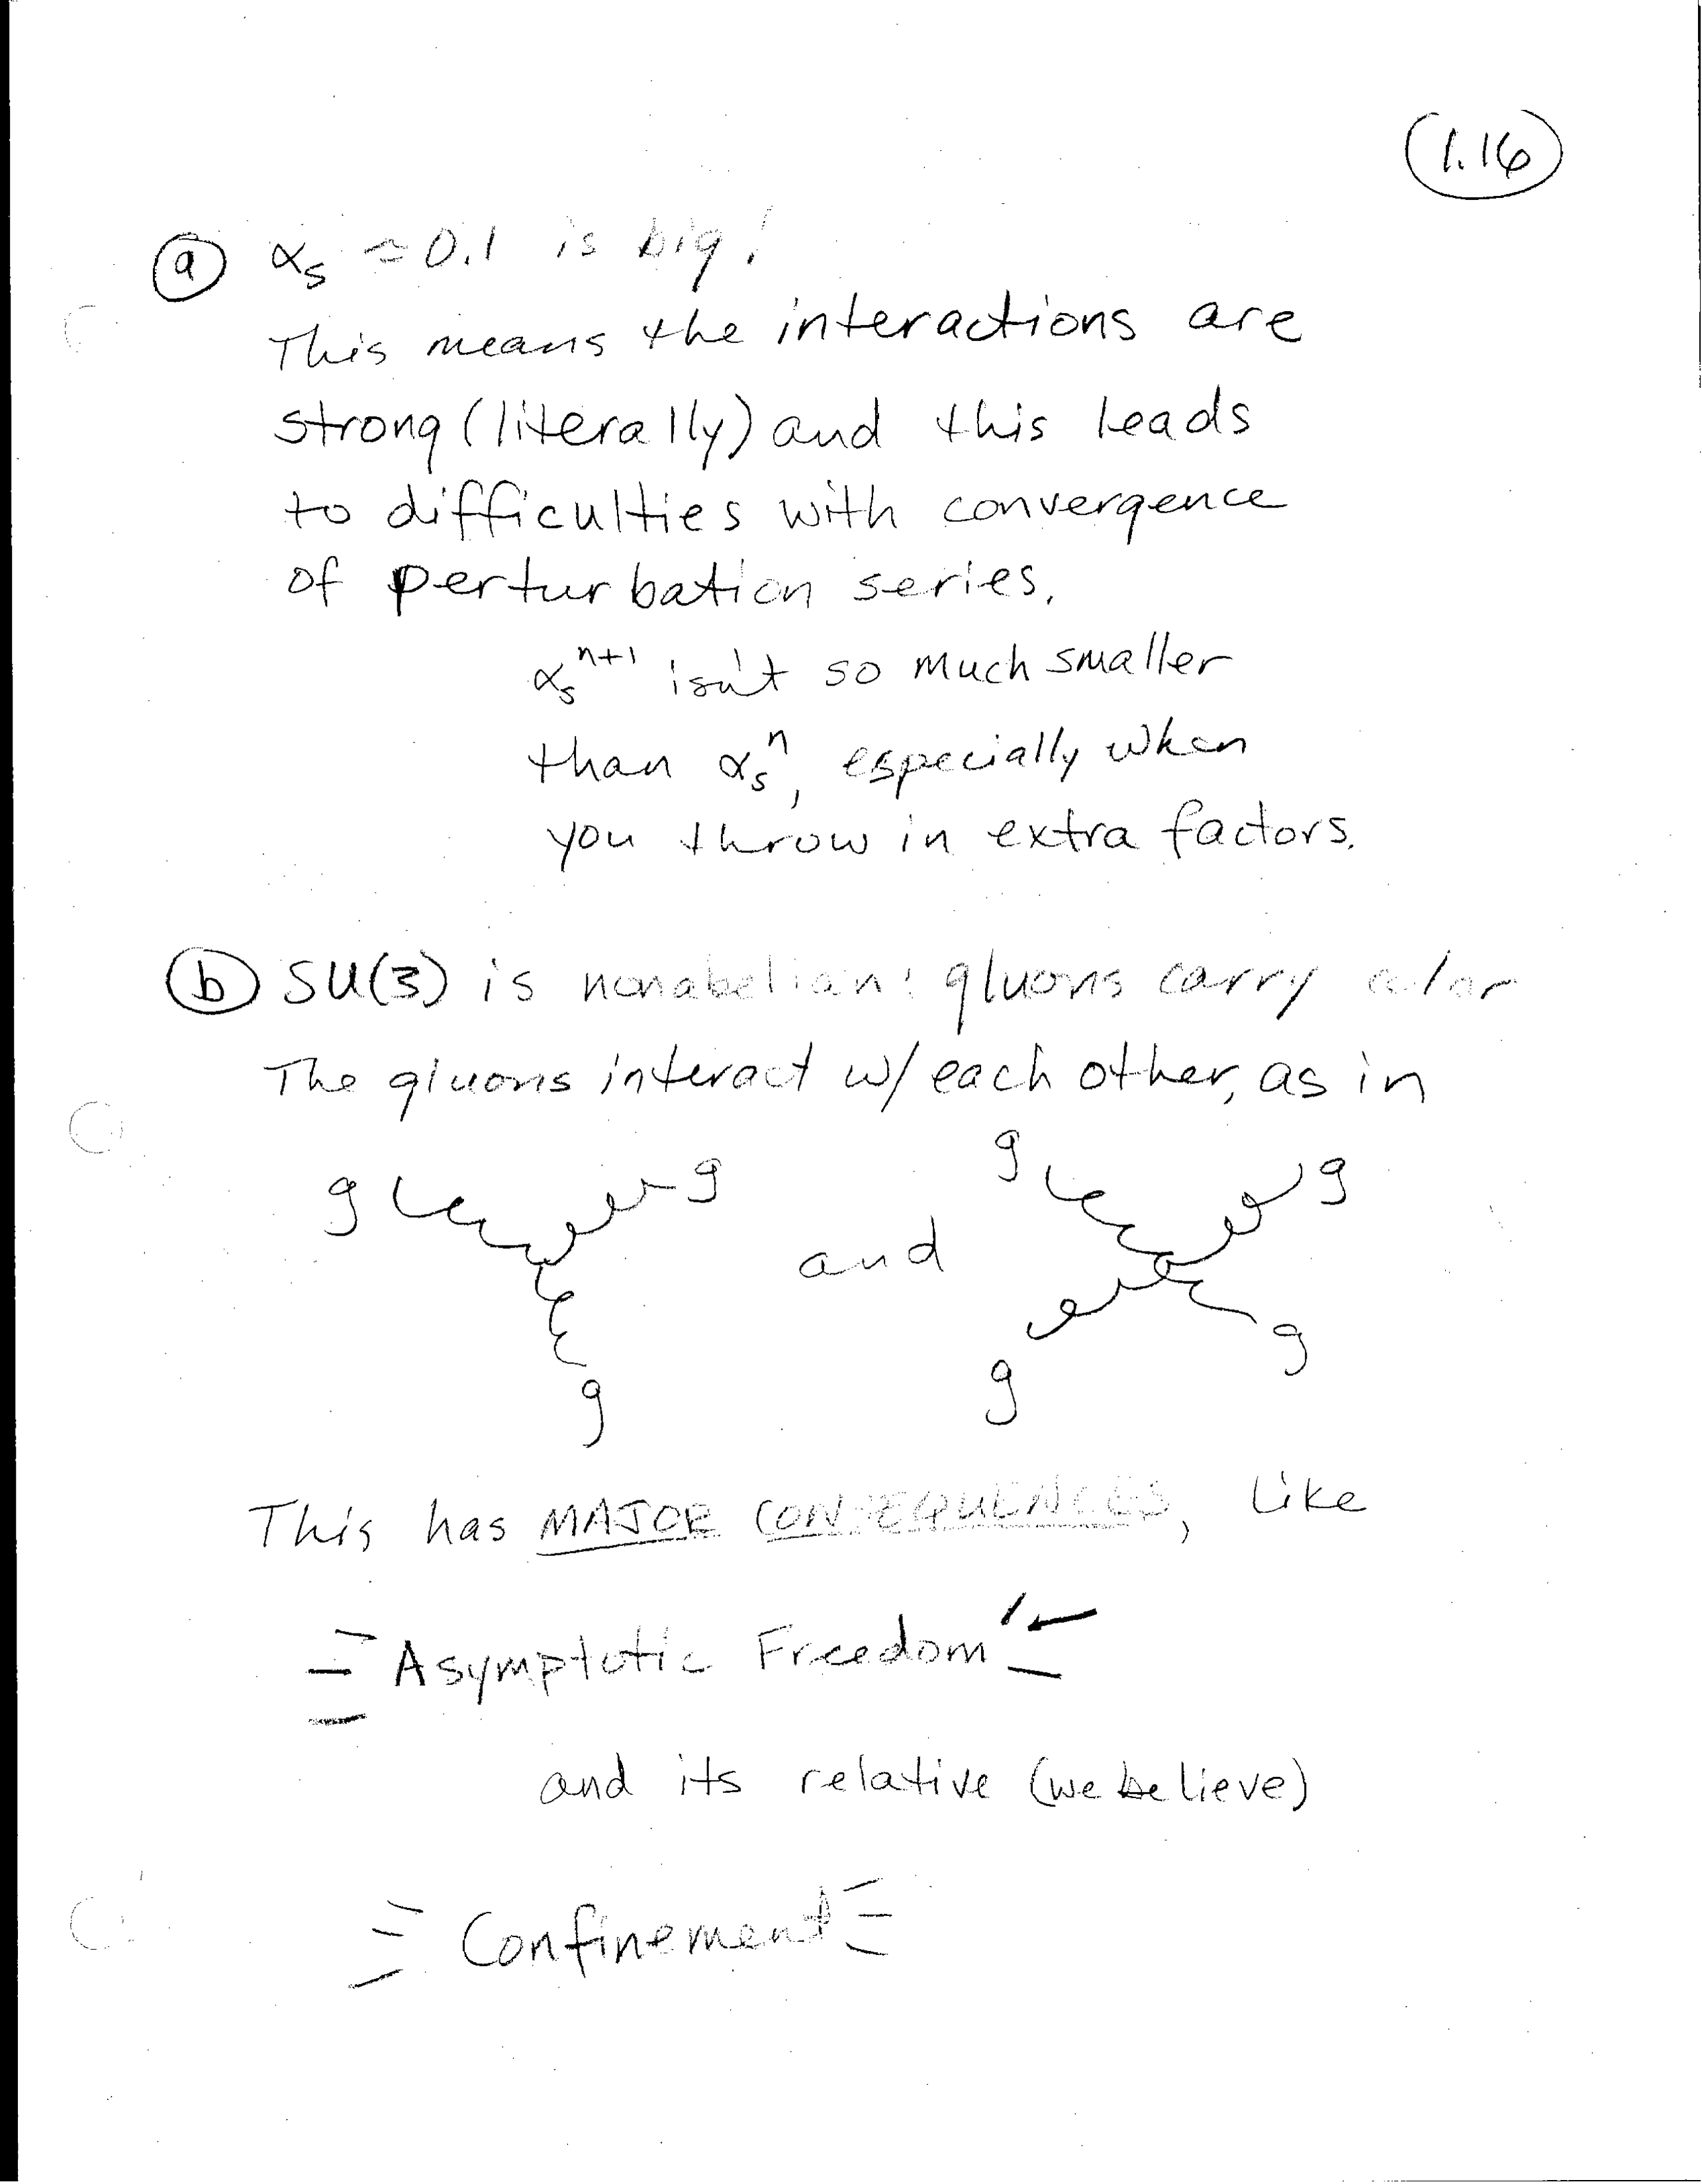 (1.16)
(a) αₛ ≃ 0.1 is big!
This means the interactions are
strong (literally) and this leads
to difficulties with convergence
of perturbation series.
αₛⁿ⁺¹ isn't so much smaller
than αₛⁿ, especially when
you throw in extra factors.
(b) SU(3) is nonabelian: gluons carry color
The gluons interact w/ each other, as in
g g g g
and
g g g
This has MAJOR CONSEQUENCES, like
Asymptotic Freedom
and its relative (we believe)
Confinement